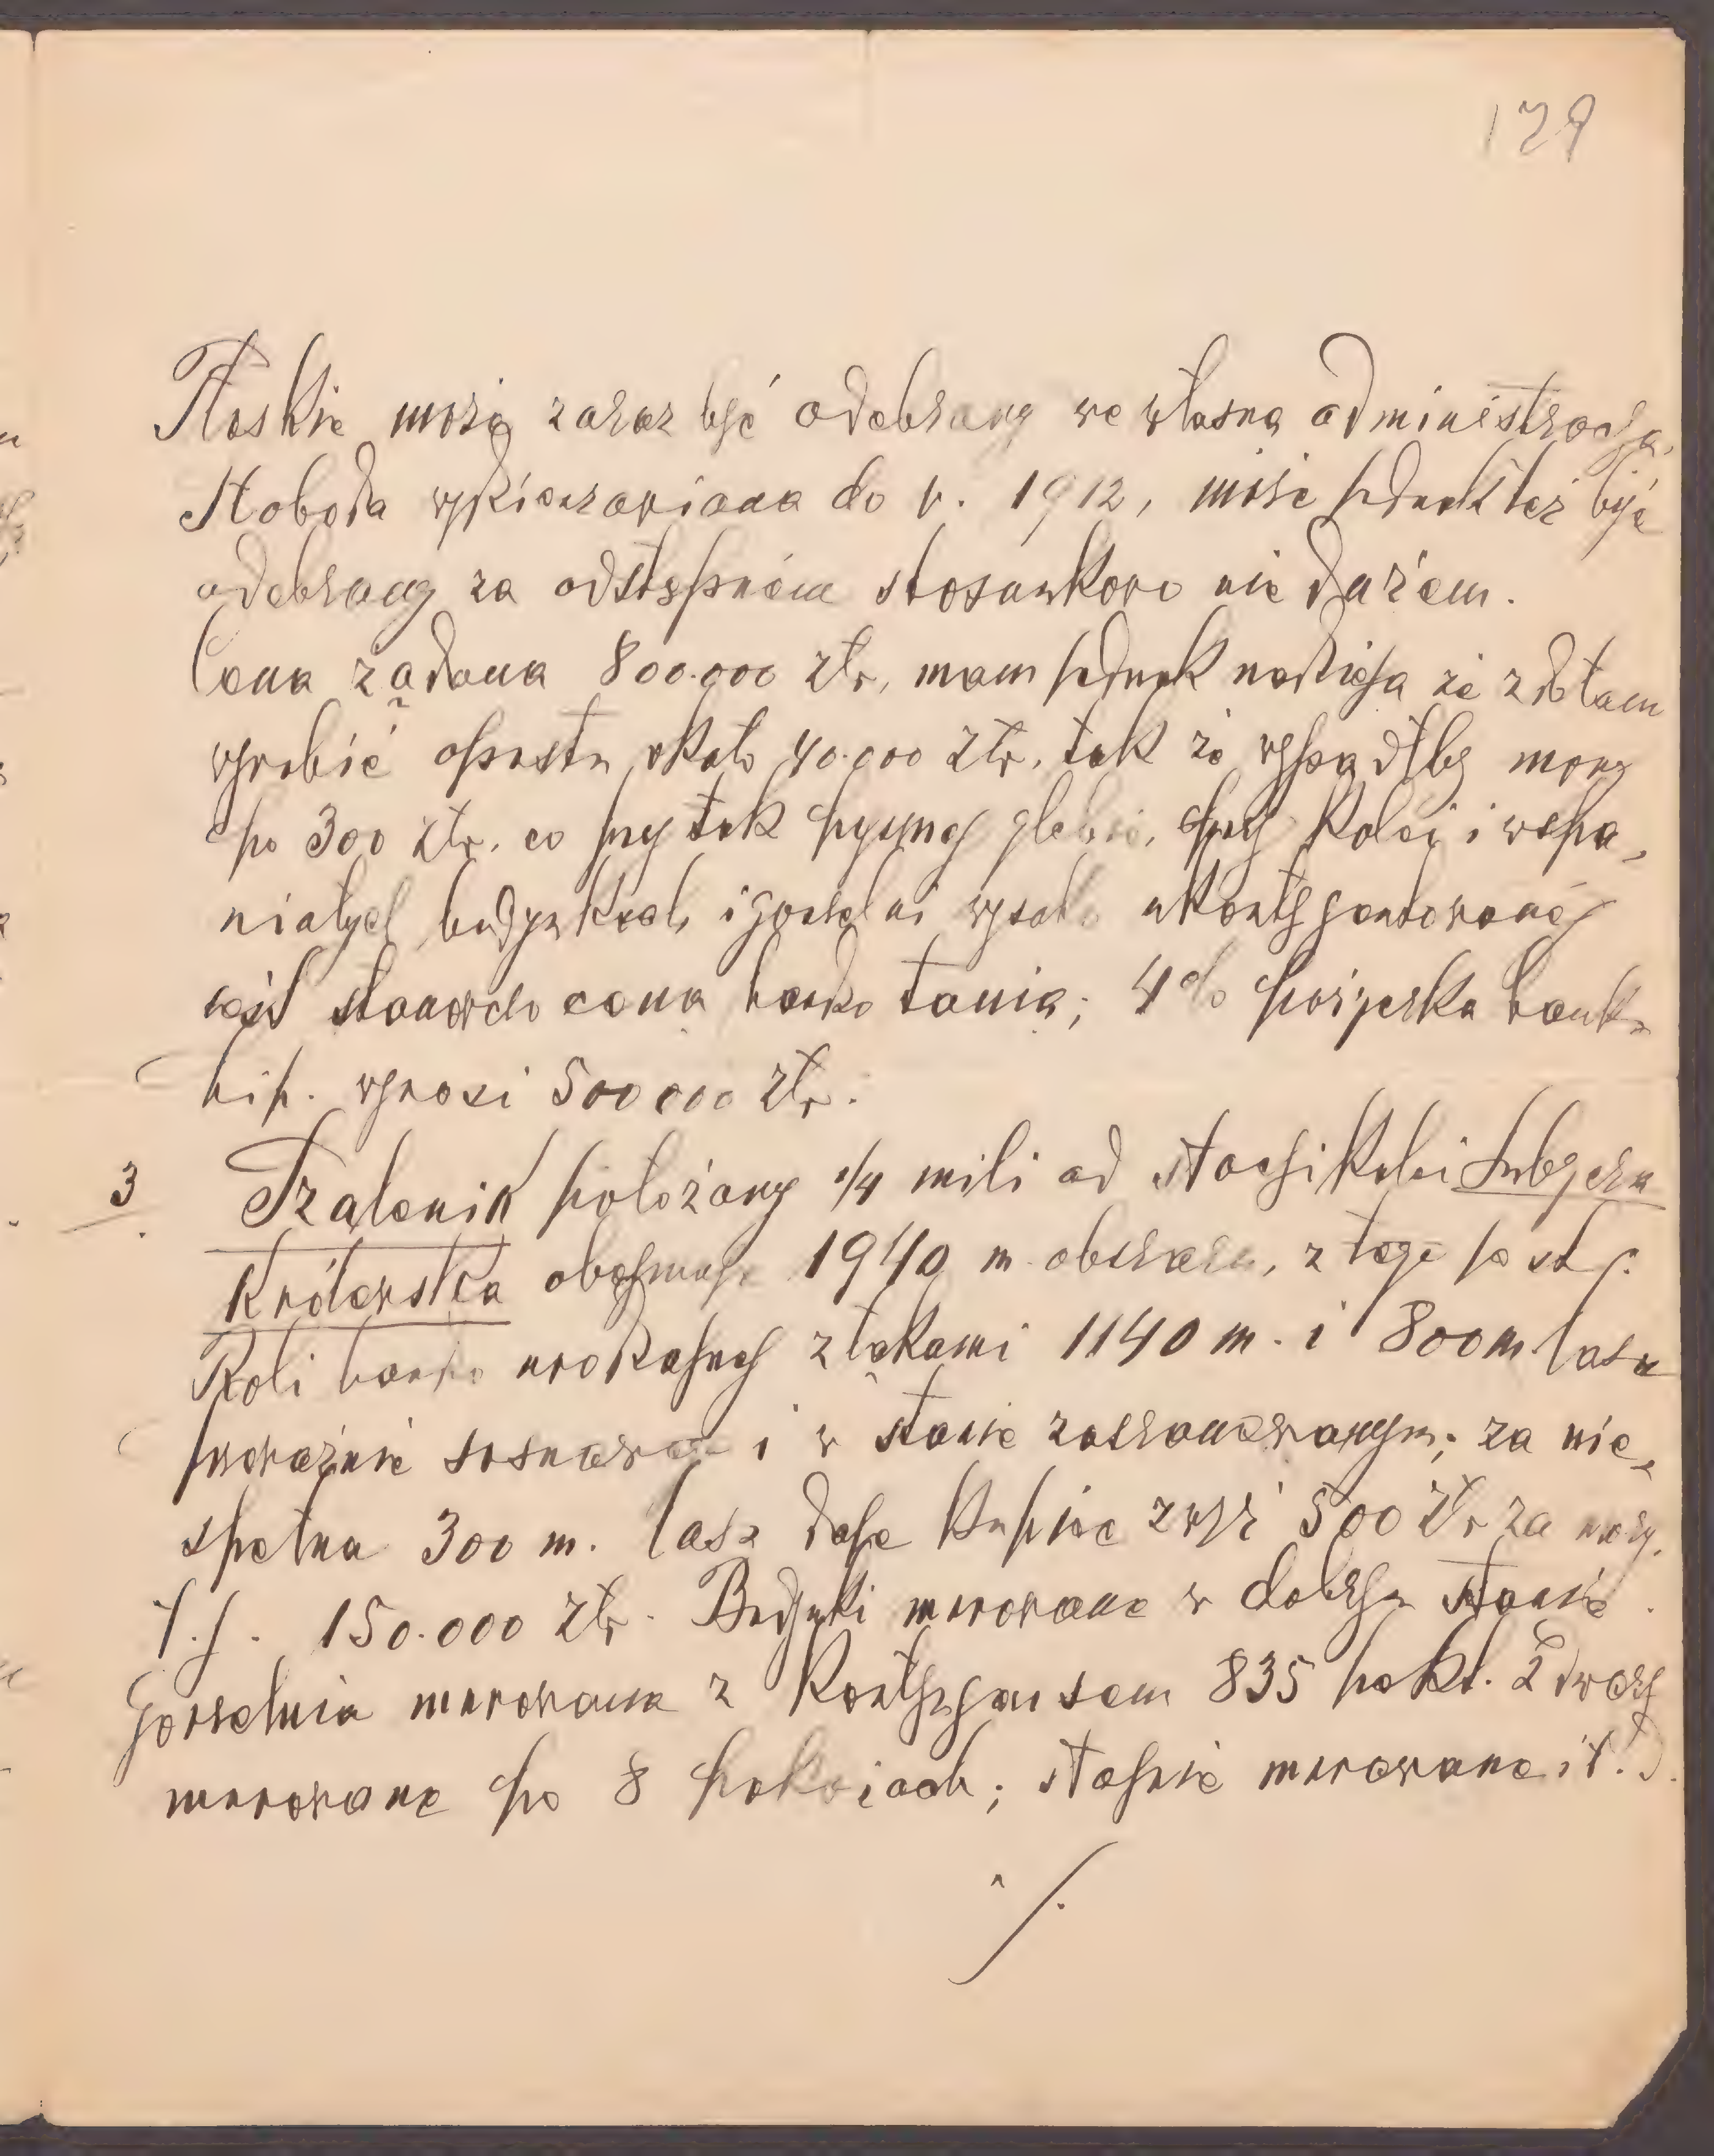 129
Płoskie może zaraz być odebrany we własną administracją,
Słoboda wydzierżawiona do r. 1912, może jednak też być
odebrany za odstępném stosunkowo nie dużém.
Cena żądana 800.000 złr, mam jednak nadzieją że zdołam
wyrobić opustu około 40.000 złr. tak że wypadłby morg
po 300 złr. co przy tak pysznej glebie, przy kolei i wspa„
niałych budynkach i gorzelni wysoko ukontyngentowanéj
jest stanowczo cena bardzo tania; 4% pożyczka bank.
hip. wynosi 500000 złr.
3 Trzalenik położony 1/4 mili od stacyi kolei Lubycza
Królewska obejmuje 1940 m. obszaru, z tego jest
Roli bardzo urodzajnej z łąkami 1140 m. i 800 m lasu
przeważnie sosnowego i w stanie zaszanowanym; za nie„
spełna 300 m. lasu daje kupiec zwyż 500 złr za morg.
t. j. 150.000 złr. Budynki murowane w dobrym stanie.
Gorzelnia murowana z kontyngensem 835 hekt. 2 dwory
murowane po 8 pokoiach; stajnie murowane i t. d.
./.